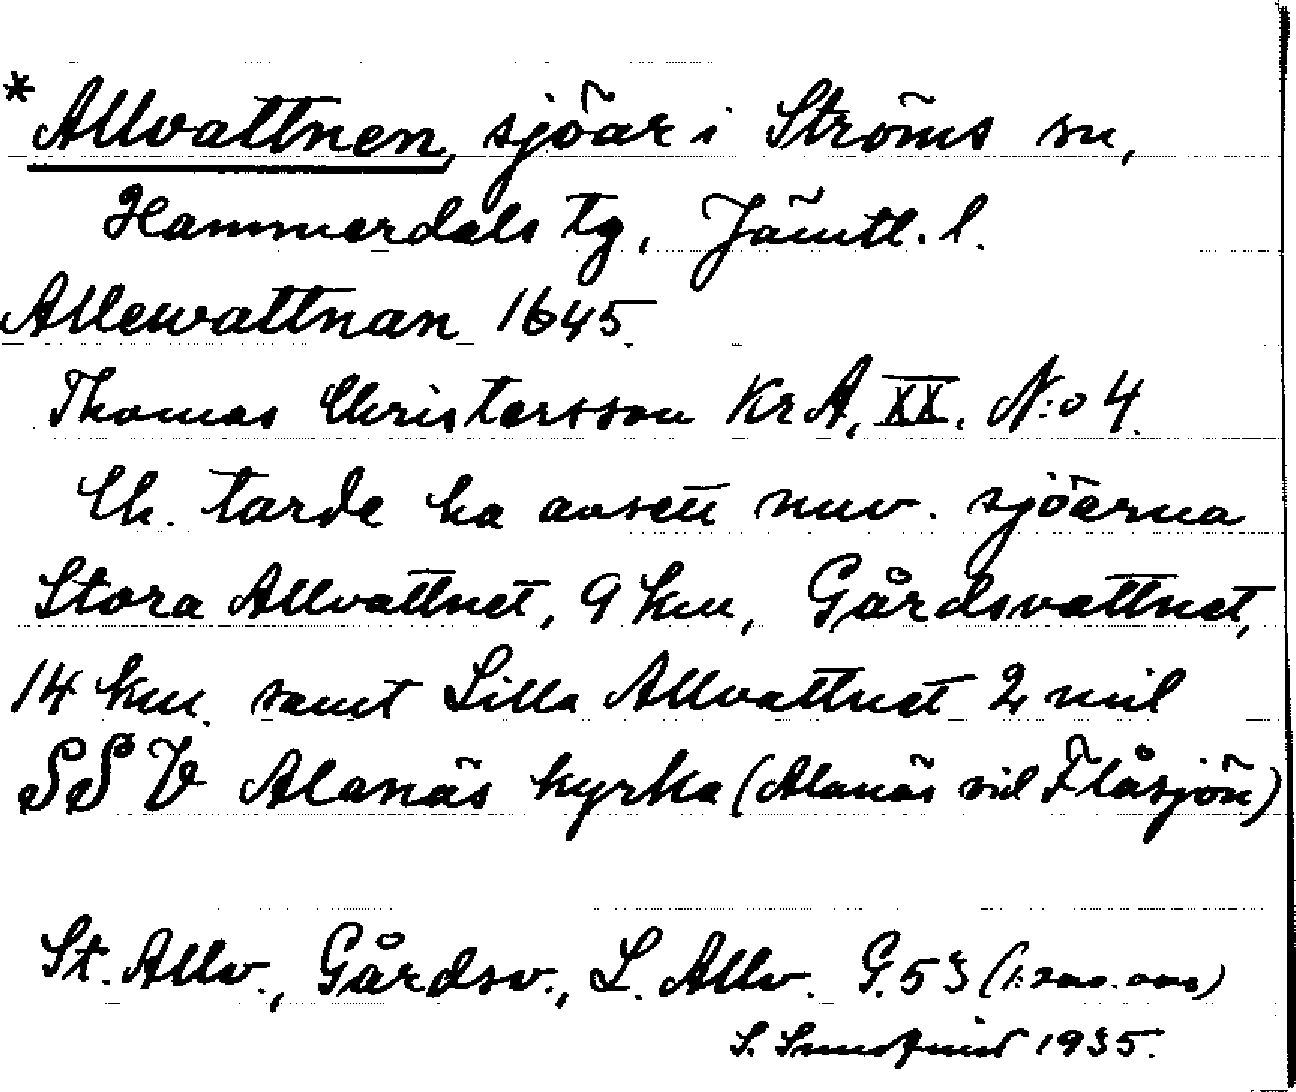 *Allvattnen, sjöar i Ströms sn,
Hammerdals tg, Jämtl. l.
Allewattnan 1645
Thomas Christersson KrA, XX. N:o 4.
Ch. torde ha avsett nuv. sjöarna
Stora Allvattnet, 9 km, Gårdsvattnet,
14 km samt Lilla Allvattnet 2 mil
SSV Alanäs kyrka (Alanäs vid Flåsjön)
St. Allv., Gårdsv., L. Allv. G. 53 (1:200.000)
S. 1935.